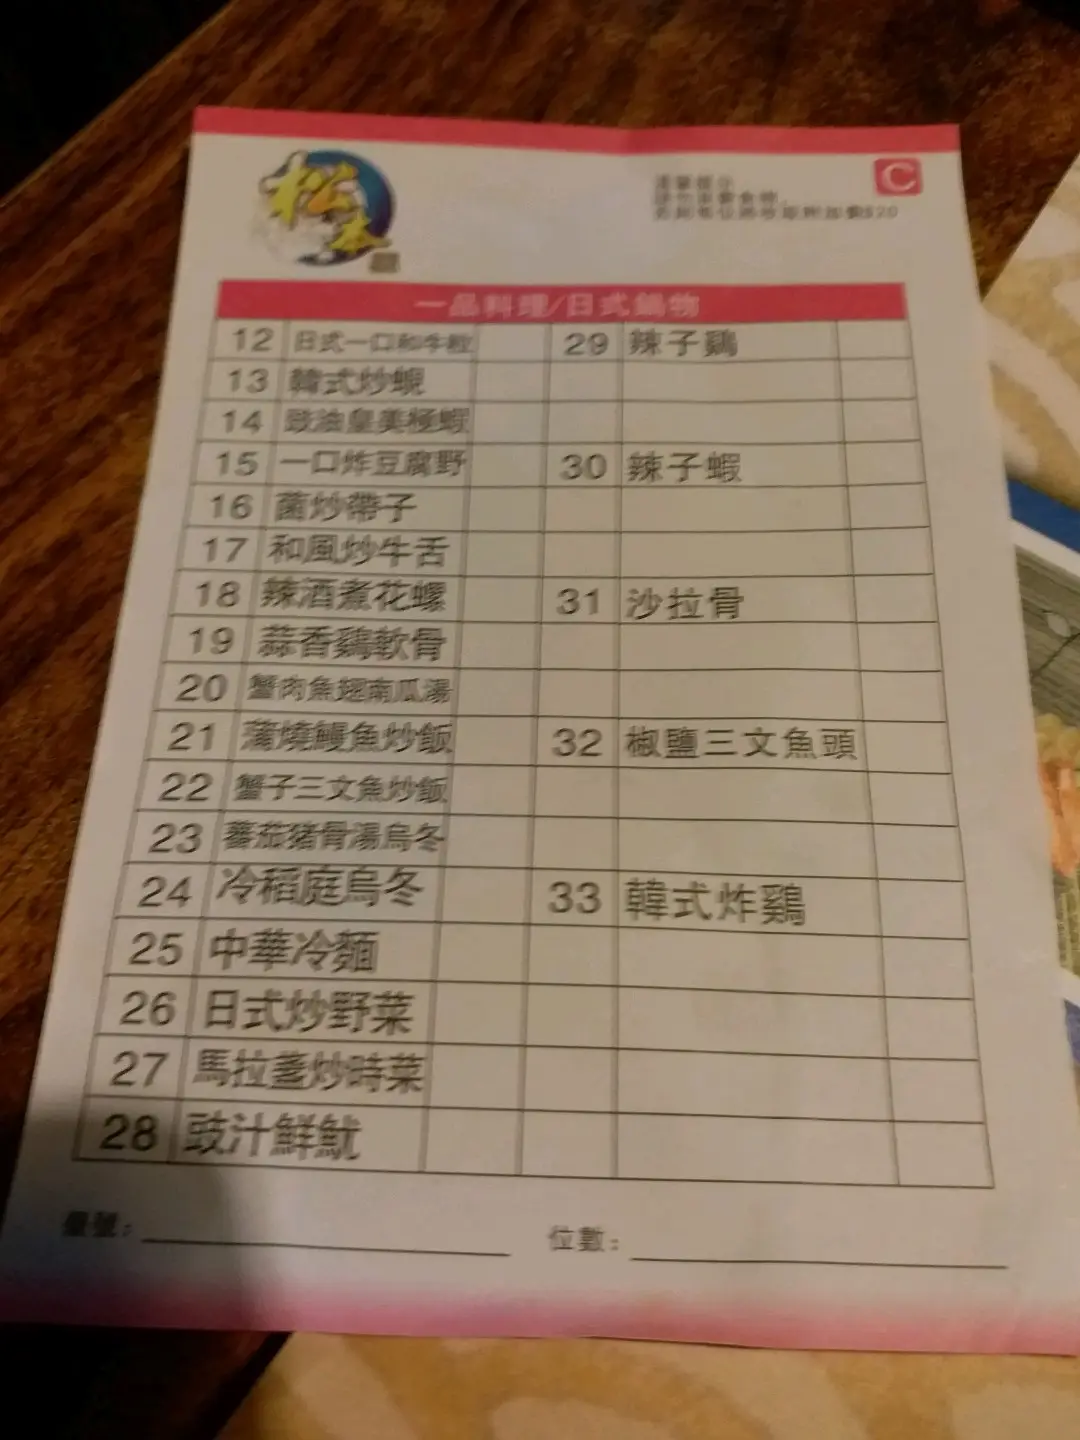 松本
C
溫馨提示
請勿浪費食物,
否則每位將收取附加費$20
一品料理/日式鍋物
12 日式一口和牛粒 29 辣子鷄
13 韓式炒蜆
14 豉油皇美極蝦
15 一口炸豆腐野 30 辣子蝦
16 菌炒帶子
17 和風炒牛舌
18 辣酒煮花螺 31 沙拉骨
19 蒜香鷄軟骨
20 蟹肉魚翅南瓜湯
21 蒲燒鰻魚炒飯 32 椒鹽三文魚頭
22 蟹子三文魚炒飯
23 蕃茄猪骨湯烏冬
24 冷稻庭烏冬 33 韓式炸鷄
25 中華冷麵
26 日式炒野菜
27 馬拉盞炒時菜
28 豉汁鮮魷
檯號: 位數: